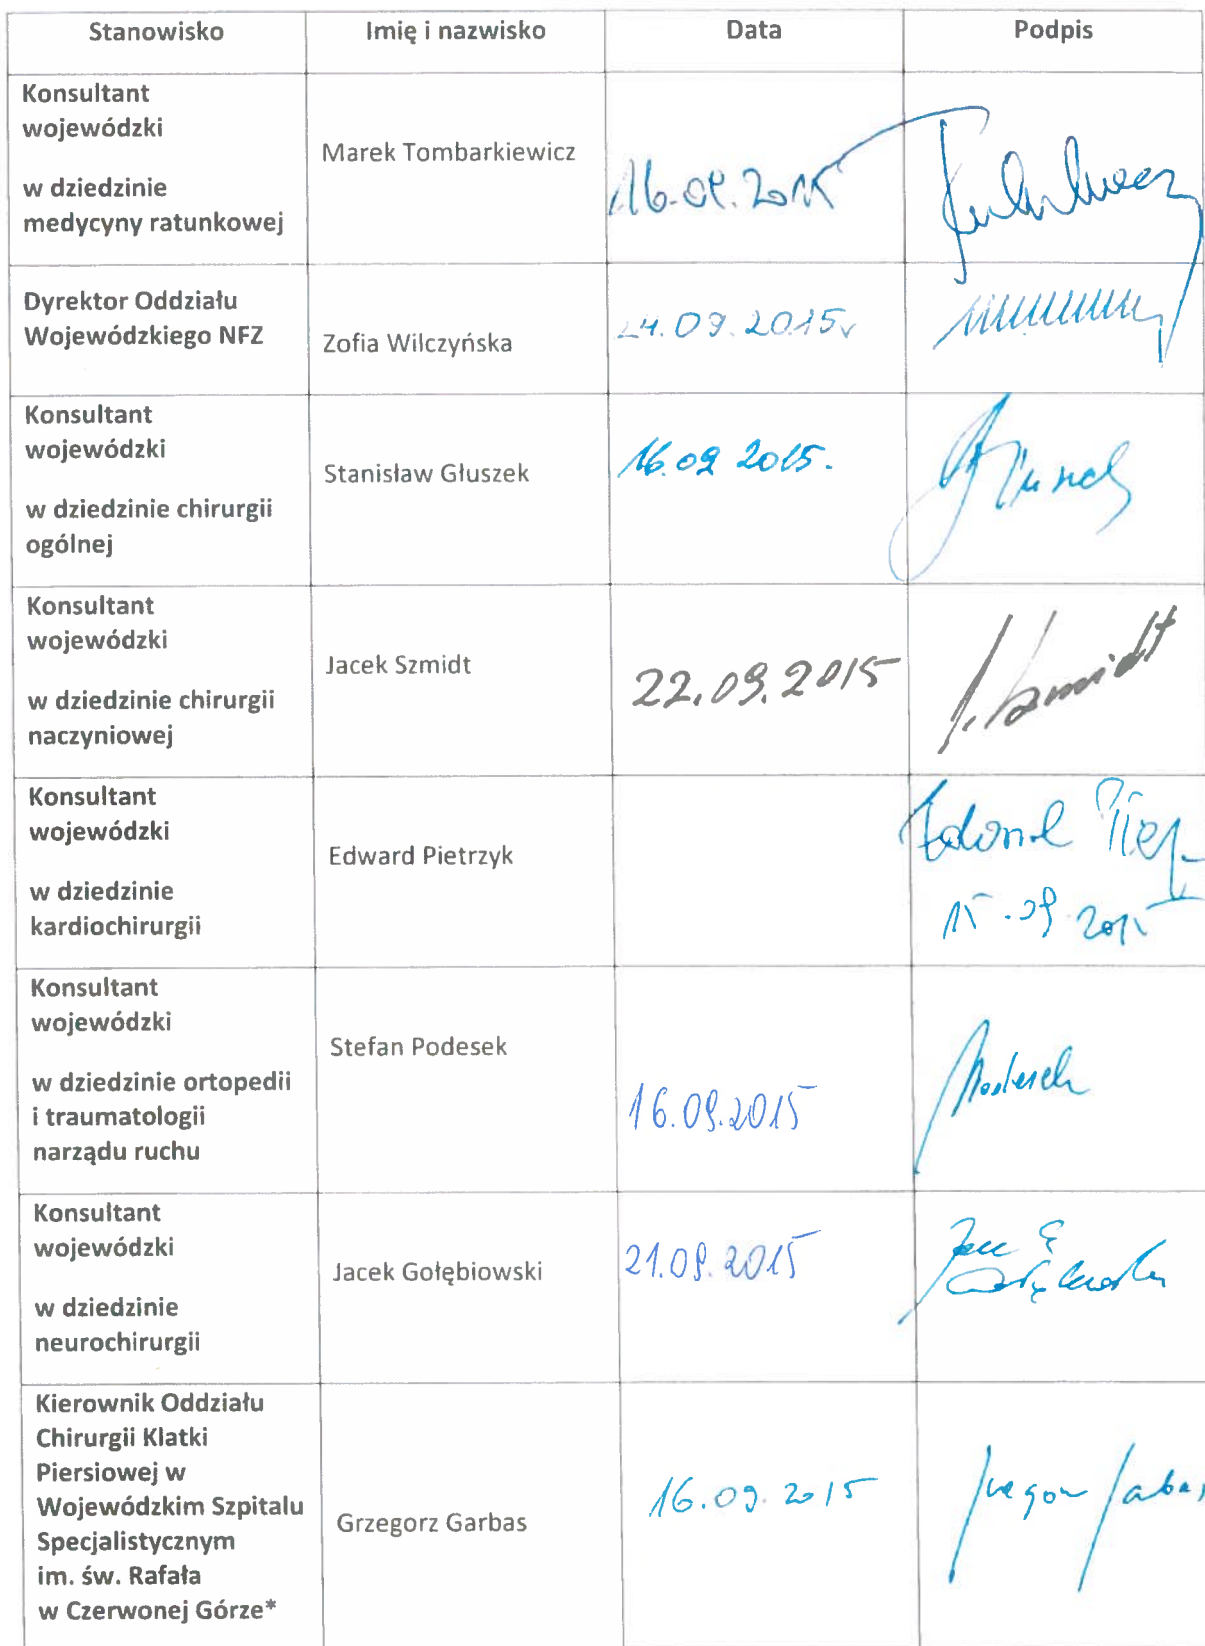 Stanowisko Imię i nazwisko Data Podpis
Konsultant
wojewódzki
w dziedzinie
medycyny ratunkowej
Marek Tombarkiewicz
16.09.2015
Dyrektor Oddziału
Wojewódzkiego NFZ
Zofia Wilczyńska
24.09.2015
Konsultant
wojewódzki
w dziedzinie chirurgii
ogólnej
Stanisław Głuszek
16.09 2015.
Konsultant
wojewódzki
w dziedzinie chirurgii
naczyniowej
Jacek Szmidt
22.09.2015
J. Szmidt
Konsultant
wojewódzki
w dziedzinie
kardiochirurgii
Edward Pietrzyk
Edward
15.09.2015
Konsultant
wojewódzki
w dziedzinie ortopedii
i traumatologii
narządu ruchu
Stefan Podesek
16.09.2015
Konsultant
wojewódzki
w dziedzinie
neurochirurgii
Jacek Gołębiowski
21.09.2015
Kierownik Oddziału
Chirurgii Klatki
Piersiowej w
Wojewódzkim Szpitalu
Specjalistycznym
im. św. Rafała
w Czerwonej Górze*
Grzegorz Garbas
16.09.2015